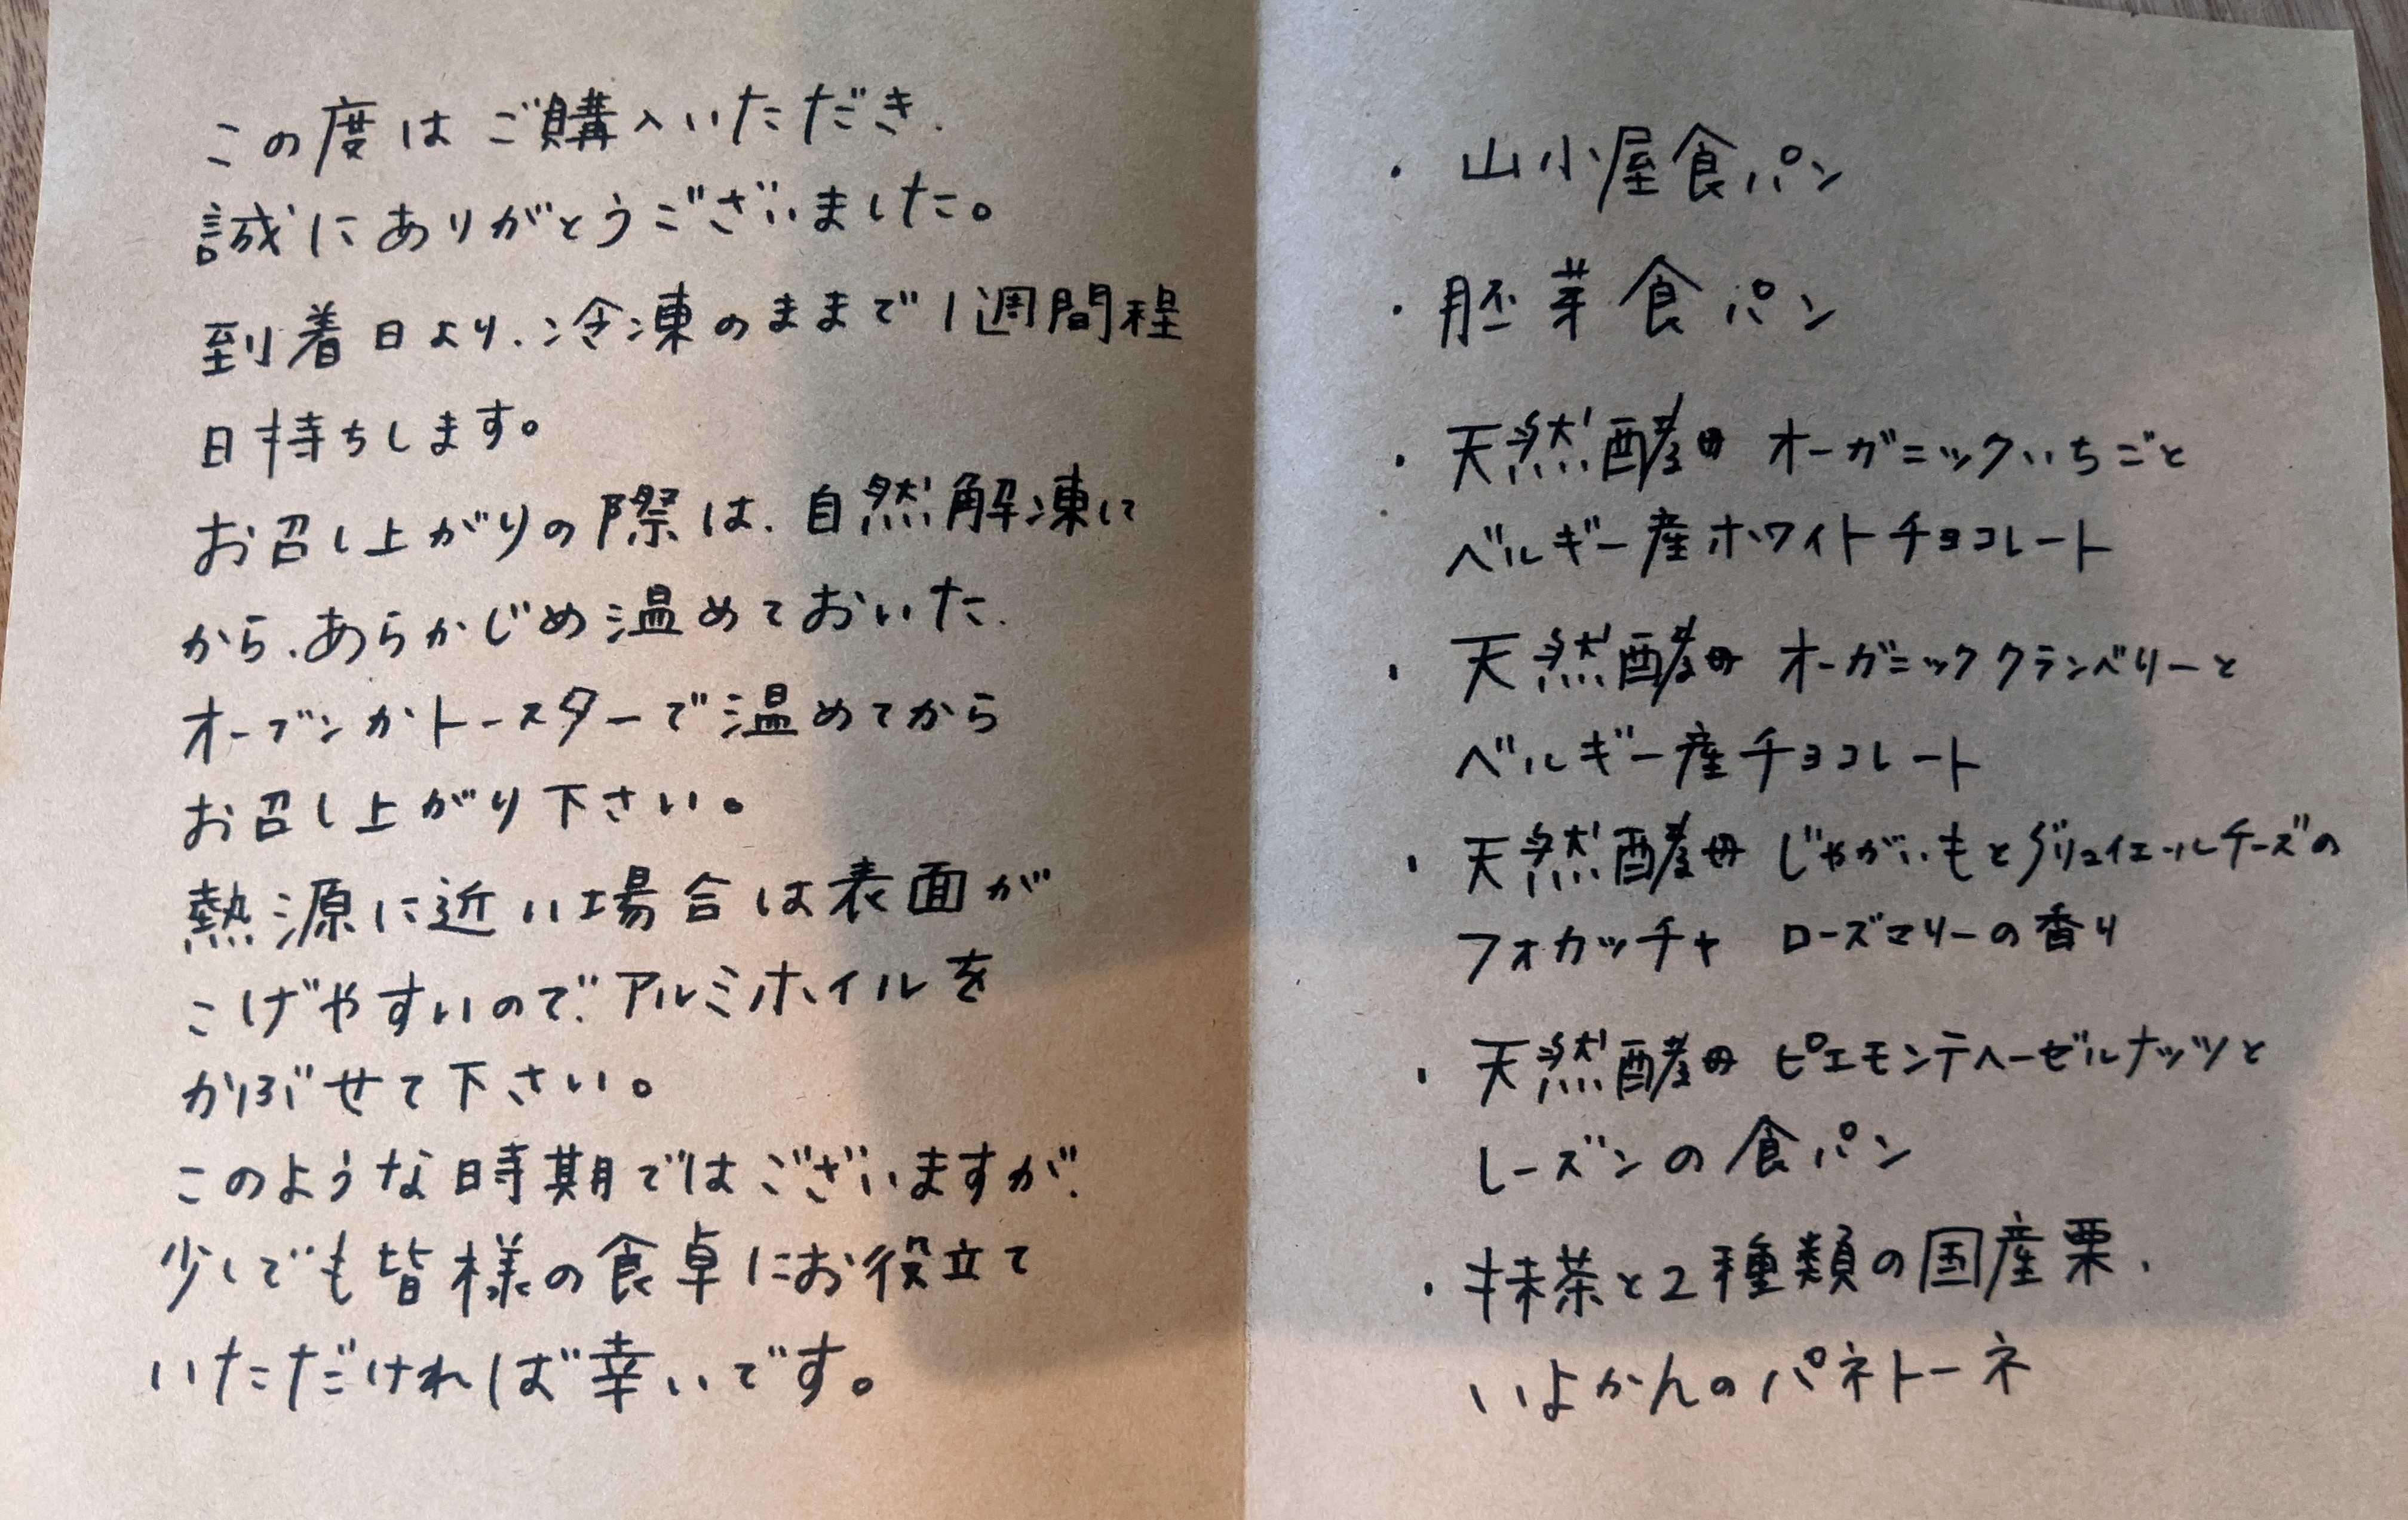 この度はご購入いただき、
誠にありがとうございました。
到着日より、冷凍のままで1週間程
日持ちします。
お召し上がりの際は、自然解凍に
から、あらかじめ温めておいた、
オーブンかトースターで温めてから
お召し上がり下さい。
熱源に近い場合は表面が
こげやすいので、アルミホイルを
かぶせて下さい。
このような時期ではございますが、
少しでも皆様の食卓にお役立て
いただければ幸いです。
・山小屋食パン
・胚芽食パン
・天然酵母 オーガニックいちごと
ベルギー産ホワイトチョコレート
・天然酵母 オーガニッククランベリーと
ベルギー産チョコレート
・天然酵母 じゃがいもとグリュイエールチーズの
フォカッチャ ローズマリーの香り
・天然酵母 ピエモンテヘーゼルナッツと
レーズンの食パン
・抹茶と2種類の国産栗、
いよかんのパネトーネ